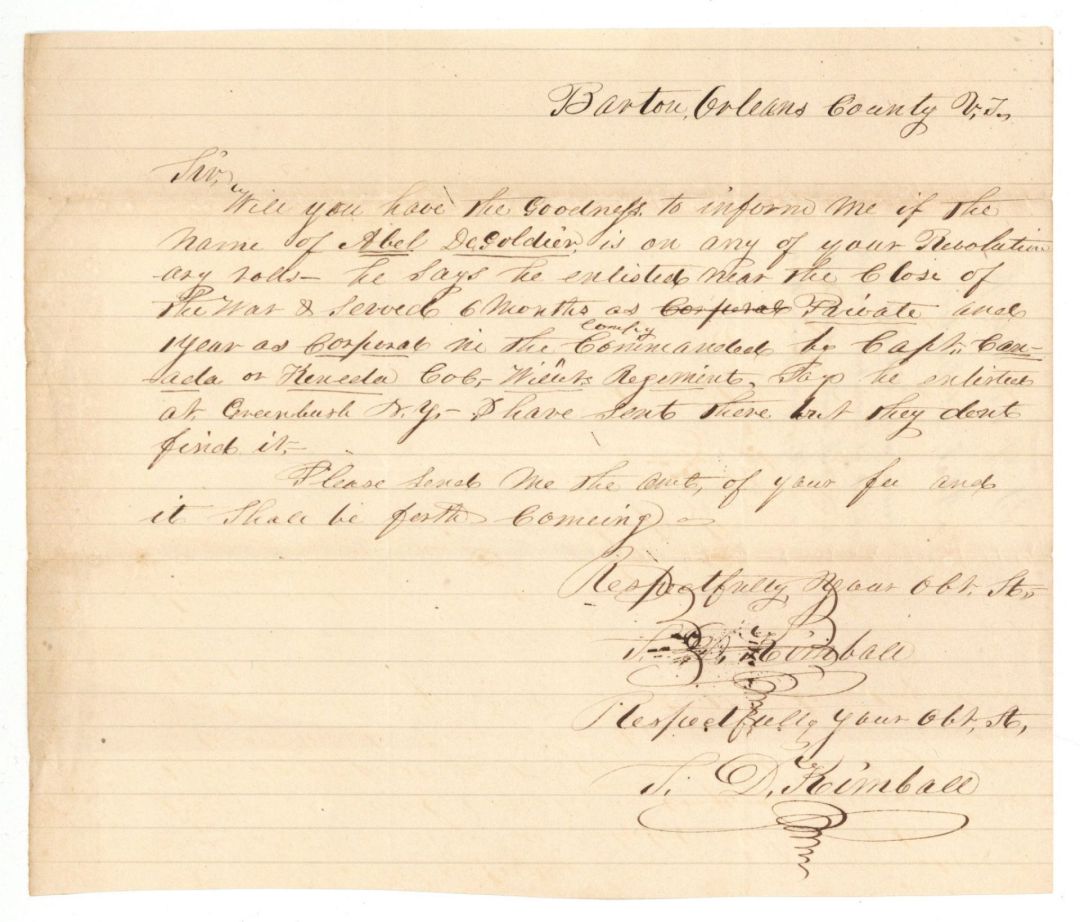 Barton, Orleans County V,T,
Sir,
Will you have the Goodness to inform me if the
name of Abel DeGoldier, is on any of your Revolution
ary rolls – he says he enlisted near the Close of
the War & served 6 Months as Corporal Private and
1 year as Corporal in the Comp'y Commanded by Capt. Can-
ada or Keneda Col, Regiment, Says he enlisted
at Greenbush N.Y. – I have sent there but they dont
find it.
Please send me the amt, of your fee and
it shall be forth Comeing –
Respectfully your Obt. St,
T. D. Kimball
Respectfully your Obt, St,
T. D. Kimball